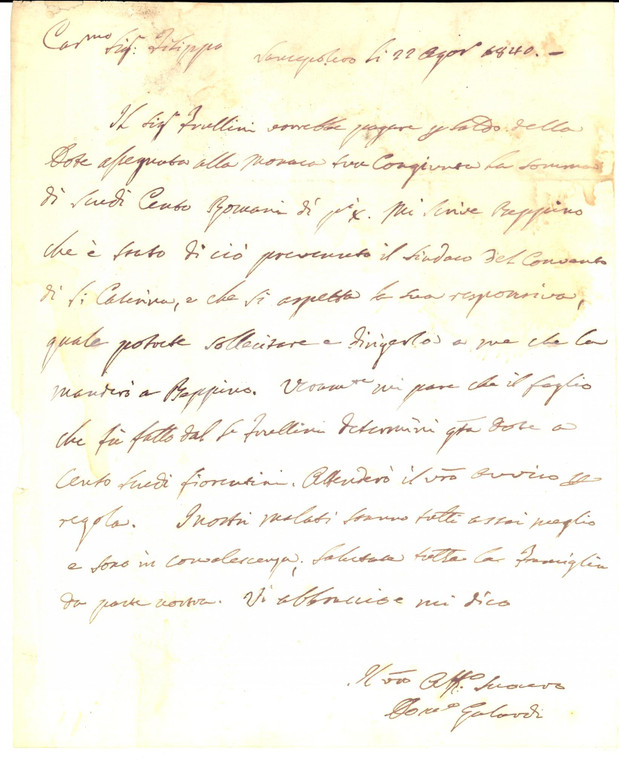 Car.mo Sig.r Filippo Sansepolcro li 22 Agos 1840. –
Il Sig.r Ivellini vorrebbe pagare p saldo della
Dote assegnata alla Monaca sua Congiunta la somma
di Scudi Cento Romani di pi x. Mi scrive Beppino
che è stato di ciò prevenuto il Sindaco del Convento
di S. Caterina, e che si aspetta la sua responsiva,
quale potrete sollecitare e dirigerla a me che la
manderò a Beppino. Veram.te mi pare che il foglio
che fu fatto dal Sr Ivellini determini q.ta Dote a
Cento Scudi fiorentini. Attenderò il vro avviso p
regola. I nostri malati stanno tutti assai meglio
e sono in convalescenza; salutate tutta la Famiglia
da parte nostra. Vi abbraccio e mi dico
Il vro Aff.o Suocero
Dom.o Gelardi